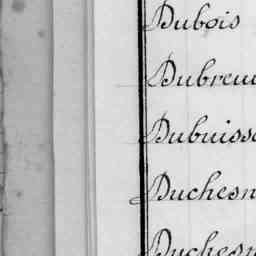 Dubois
Dubreu
Dubuisso
Duchesn
Duchesn